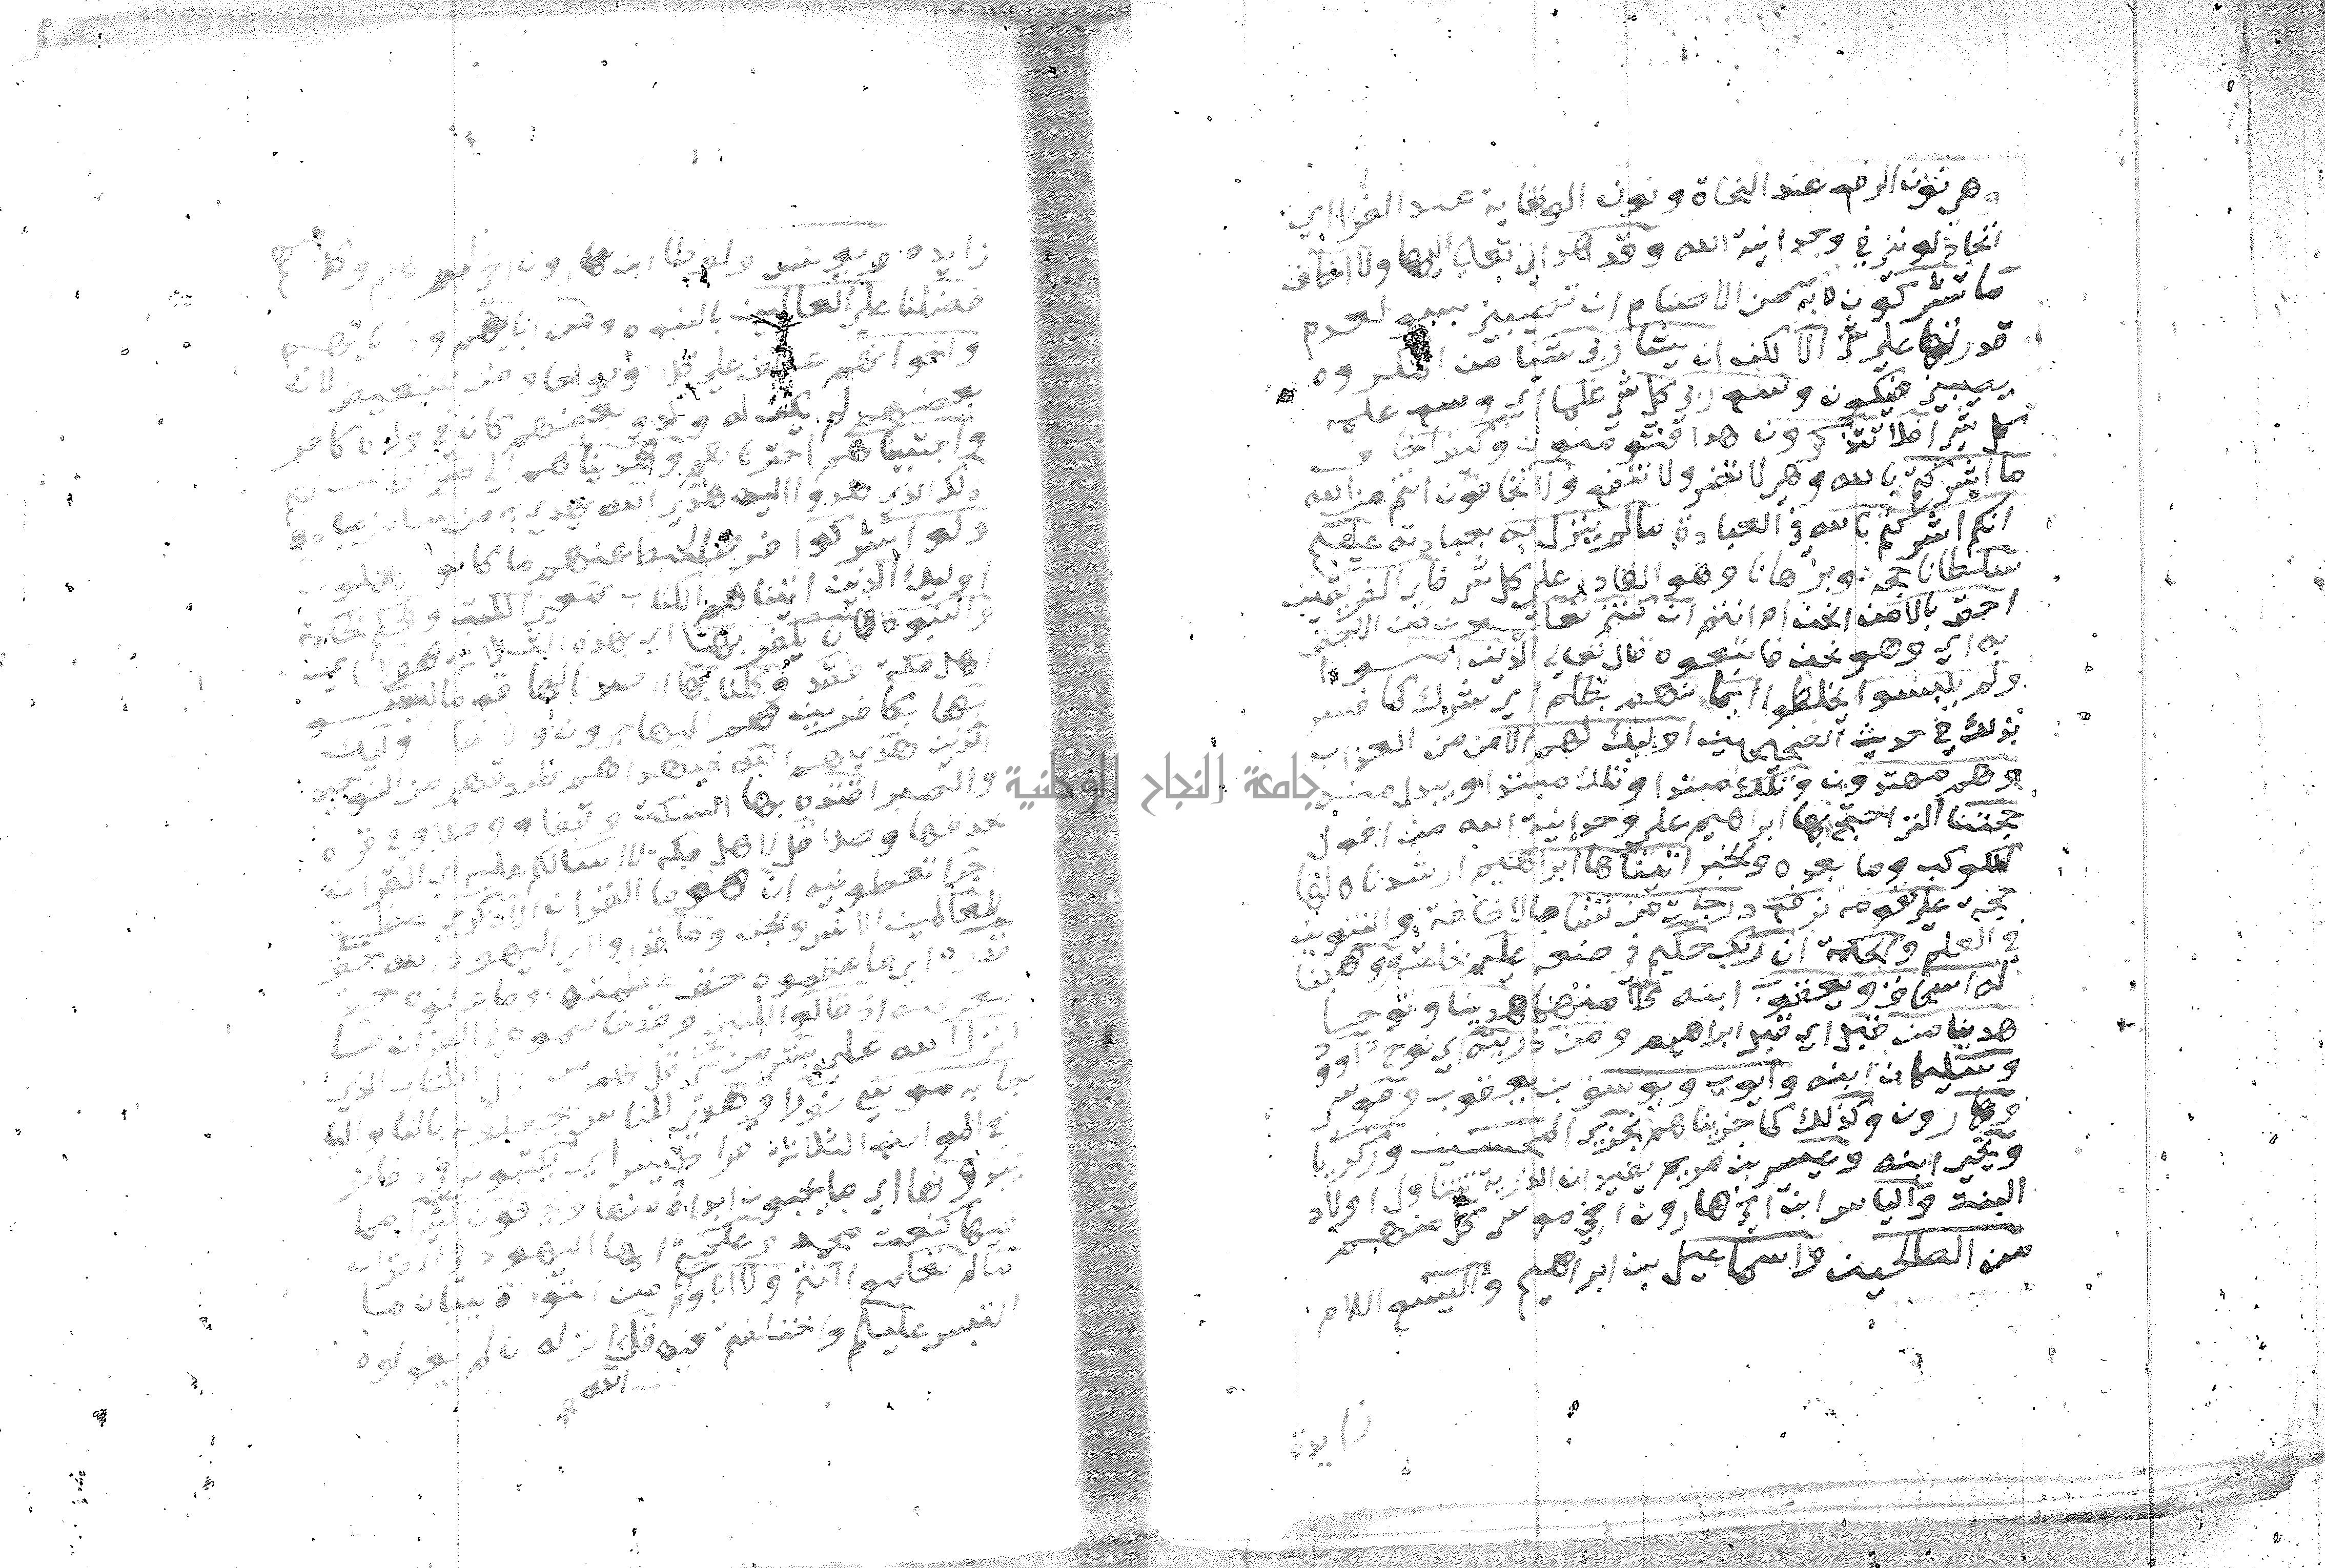 وهي نون الرفع عند النحاة ونون الوقاية عند القرا اي
اتجادلونني في وحدانية الله وقد هداني تعالي اليها ولا اخاف
ما تشركون ه به من الاصنام ان تصيبني بسو لعدم
قدرتها علي شي الا لكن ان يشا ربي شيا من المكروه
يصيبني فيكون وسع ربي كل شي علما اي وسع علمه
كل شي افلا تتذكرون هذا فتؤمنون وكيف اخاف
ما اشركتم بالله وهي لا تضر ولا تنفع ولا تخافون انتم من الله
انكم اشركتم بالله في العبادة ما لم ينزل به بعبادته عليكم
سلطانا حجة وبرهانا وهو القادر علي كل شي فاي الفريقين
احق بالامن انحن ام انتم ان كنتم تعلمون من الاحق
به اي وهو نحن فاتبعوه قال تعالي الذين امنوا
ولم يلبسوا يخلطوا ايمانهم بظلم اي شرك كما فسر
بذلك في حديث الصحيحين اوليك لهم الامن من العذاب
وهم مهتدون وتلك مبتدا وتلك مبتدا ويبدل منه
حجتنا التي احتج بها ابراهيم علي وحدانية الله من افول
الكوكب وما بعده والخبر اتيناها ابراهيم ارشدناه لها
حجة علي قومه نرفع درجات من نشا بالاضافة والتنوين
في العلم والحكمة ان ربك حكيم في صنعه عليم بخلقه ووهبنا
له اسحاق ويعقوب ابنه كلا منهما هدينا ونوحا
هدينا من قبل اي قبل ابراهيم ومن ذريته اي نوح داوود
وسليمان ابنه وايوب ويوسف بن يعقوب وموسي
وهارون وكذلك كما جزيناهم نجزي المحسنين وزكريا
ويحيي ابنه وعيسي بن مريم يفيد ان الذرية تتناول اولاد
البنت والياس ابن اخي هارون اخي موسي كل منهم
من الصالحين واسماعيل بن ابراهيم واليسع اللام
زايدة
زايده ويونس ولوطا ابن هارون اخي ابراهيم وكلا منهم
فضلنا علي العالمين بالنبوه ومن ابايهم وذرياتهم
واخوانهم عطف علي كلا او نوحا ومن للتبعيض لان
بعضهم لم يكن له ولد وبعضهم كان في ولده كافر
واجتبيناهم اخترناهم وهديناهم الي صراط مستقيم
ذلك الذي هدوا اليه هدي الله يهدي به من يشا من عباده
ولو اشركوا فرضا لحبط عنهم ما كانوا يعملون
اوليك الذين اتيناهم الكتاب بمعني الكتب والحكم الحكمة
والنبوة فان يكفر بها اي بهذه الثلاثة هولا اي
اهل مكة فقد وكلنا بها ارصدنا لها قوما ليسو
بها بكافرين هم المهاجرون والانصار اوليك
الذين هداهم الله فبهداهم طريقهم من التوحيد
والصبر اقتده بها السكت وقفا ووصلا وفي قراه
بحذفها وصلا قل لاهل مكة لا اسالكم عليه اي القران
اجرا تعطونيه ان هو ما القران الا ذكري عظة
للعالمين الانس والجن وما قدروا اي اليهود الله حق
قدره اي ما عظموه حق عظمته وما عرفوه حق
معرفته اذ قالوا للنبي وقد خاصموه في القران ما
انزل الله علي بشر من شي قل لهم من انزل الكتاب الذي
جا به موسي نورا وهدي للناس تجعلونه بالتا واليا
في المواضع الثلاثة قراطيس اي يكتبونه في دفاتر
تبدونها اي ما يحبون ابداه منها ويخفون كثيرا مما
فيها كنعت محمد وعلمتم ايها اليهود في القران
ما لم تعلموا انتم ولا اباوكم من التوراة ببيان ما
التبس عليكم واختلفتم فيه قل انزله ان لم يقولوه
الله
جامعة النجاح الوطنية